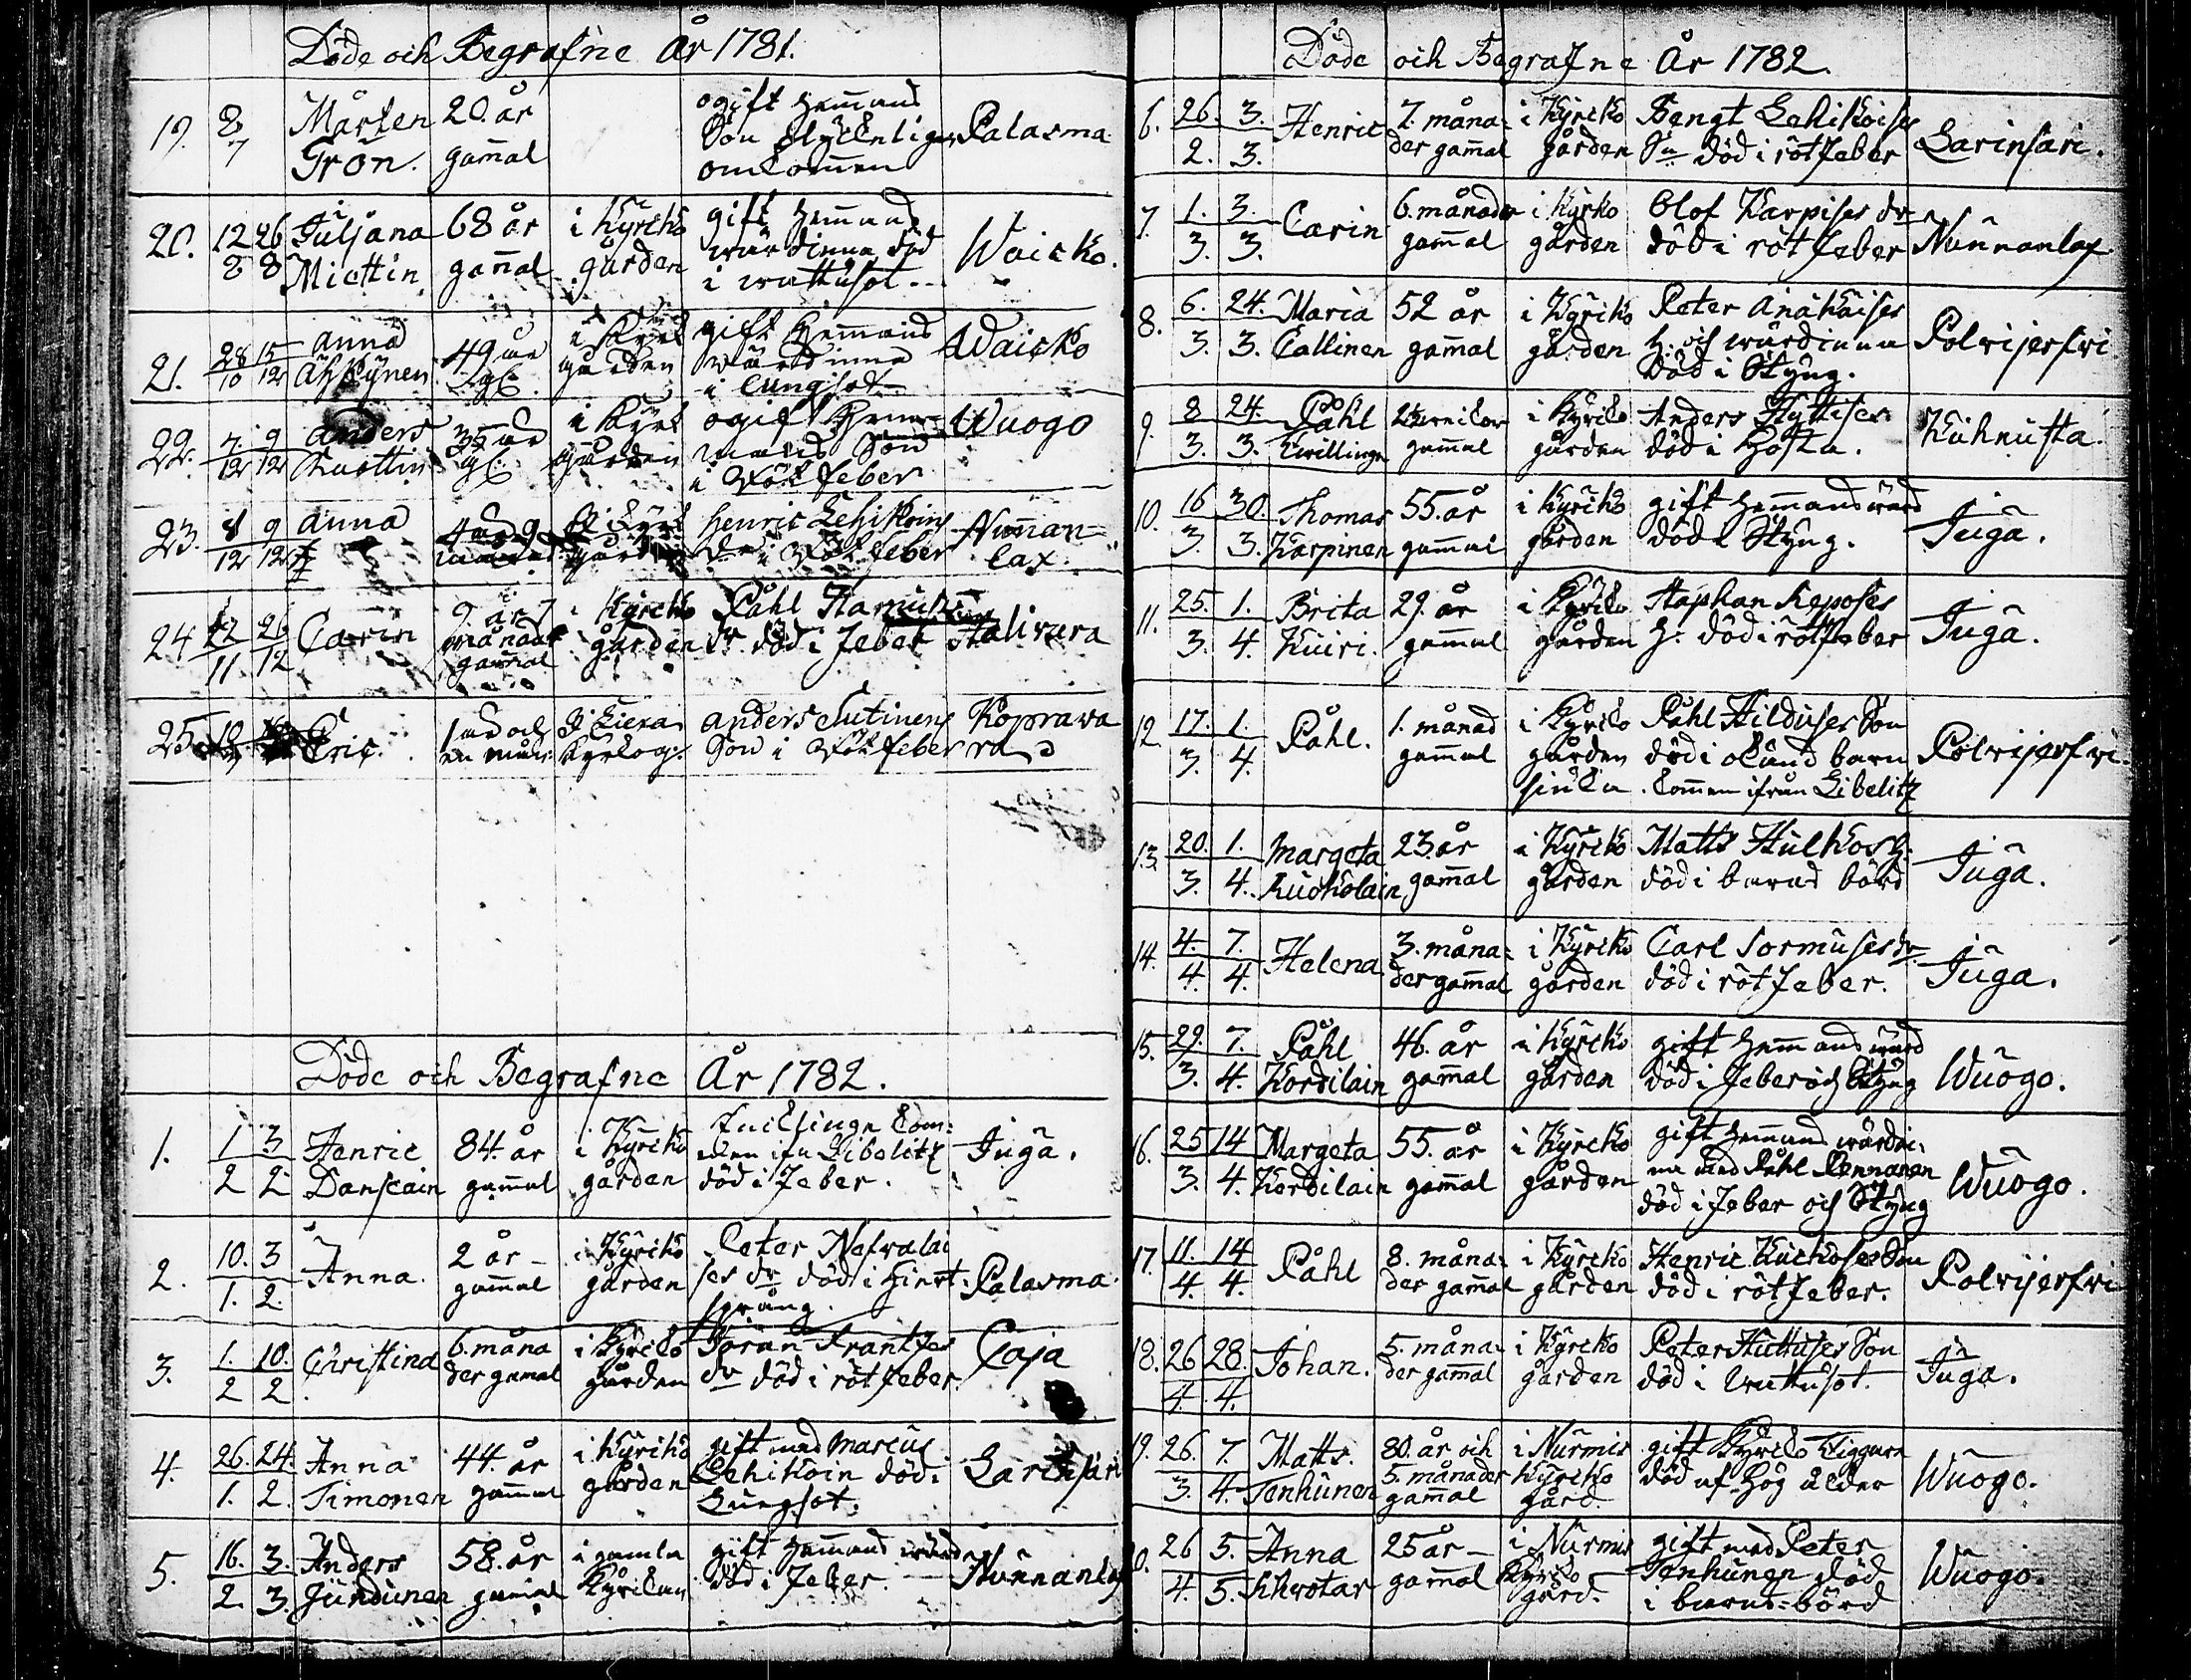 Döde och Begrafne År 1781.
19. 8/7 Mårten Grön. 20. år gam̄al ogift Hem̄ans Son olyckligen omkom̄en Palasma
20. 12/8 26/8 Juljana Miettin 68 år gam̄al i Kyrcko gården gift Hem̄ans wärdinna död i wattusot Waicko.
21. 28/10 15/12 Anna 49 år gl. i Kyrk gården gift Hemmans wärdinna i lungsot Waicko
22. 7/12 9/12 Anders 35 år gl. i Kyrk gården ogift Hemmans Son i Rötfeber Wuogo
23. 8/12 9/12 Anna gården Henric Lehikoins dr i Rötfeber Nunnanlax
24 11 12 Carin 9. år 7 månader gammal i Kyrcko gården Påhl dr. död i feber Halivara
25 Eric 1 år och en mån: Kyrkog: Anders Sutinens Son i Rötfeber Koprawara
Döde och Begrafne År 1782.
1. 1/2 3/2 Henric Danscain 84. år gam̄al i Kyrcko gården Inhysinge kommen ifrån Libelitz död i feber. Juga.
2. 10./1. 3/2. Anna. 2 år gam̄al i Kyrcko gården Peter Nefvalaises dr död i Hiertsprång. Palasma.
3. 1./2 10./2 Christina 6. månader gam̄al i Kyrcko gården Göran Frantzes dr död i rötfeber Caja
4. 26./1. 24./2. Anna Timonen 44. år gam̄al i Kyrcko gården gift med Marcus Lehikoin död i Lungsot. Larinsari
5. 16./2. 3./3. Anders Jundunen 58. år gam̄al i gamla Kyrckan gift Hem̄ans wärd död i feber. Nunnanlax
Döde och Begrafne År 1782.
6. 26./2. 3./3. Henric 7. månader gam̄al i Kyrcko gården Bengt Lehikoises Sn död i rötfeber Larinsari.
7. 1./3. 3./3. Carin 6. månader gam̄al i Kyrko gården Olof Karpises dr död i rötfeber Nunnanlax
8. 6./3. 24./3. Maria Callinen 52 år gam̄al i Kyrcko gården Peter Anakaises H. och wärdinna död i Styng. Polvijerfvi
9. 8/3. 24./3. Påhl Twillinge gam̄al i Kyrcko gården Anders Kyttises död i Hosta. Kuhnusta.
10. 16/3. 30./3. Thomas Karpinen 55. år gam̄al i Kyrcko gården gift Hem̄ans wärd död i Styng. Juga.
11. 25./3. 1./4. Brita Kuiri. 29. år gam̄al i Kyrcko gården Staphan Reposes H. död i rötfeber Juga.
12. 17./3. 1./4. Påhl. 1. månad gam̄al i Kyrcko gården Påhl Hilduses Son död i okänd barn sjuka. kommen ifrån Libelitz Polvijerfvi.
13. 20./3. 1./4. Margeta Ruokolain 23. år gam̄al i Kyrcko gården Matts Hulkos H. död i barns börd Juga.
14. 4./4. 7./4. Helena 3. månader gam̄al i Kyrcko gården Carl Sormuses dr död i rötfeber. Juga.
15. 29./3. 7./4. Påhl Kordilain 46. år gam̄al i Kyrcko gården gift Hem̄ans wärd död i feber och Styng Wuogo.
16. 25/3. 14/4. Margeta Kordilain 55. år gam̄al i Kyrcko gården gift Hem̄ans wärdinna med Påhl Pennanen död i feber och Styng Wuogo.
17. 11./4. 14/4. Påhl 8. månader gam̄al i Kyrcko gården Henric Kuckoses Son död i rötfeber. Polvijerfvi
18. 26/4. 28./4. Johan. 5. månader gam̄al i Kyrcko gården Peter Huttuses Son död i wattusot. Juga.
19. 26./3. 7./4. Matts. Tenhunen 80. år och 5. månader gam̄al i Nurmis Kyrcko gård gift Kyrcko Tiggare död af hög ålder Wuogo.
20. 26/4. 5./5. Anna 25 år gam̄al i Nurmis Kyrcko gård. gift med Peter Tenhunen död i barns-börd Wuogo.